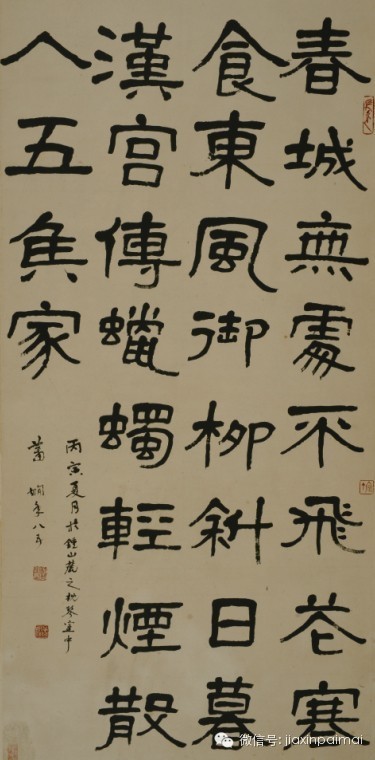 春城無處不飛花寒
食東風御柳斜日暮
漢宮傳蠟蠋輕煙散
入五侯家
丙寅夏月於鍾山麓之枕琴室中
蕭嫻年八五
微信号: jiaxinpaimai